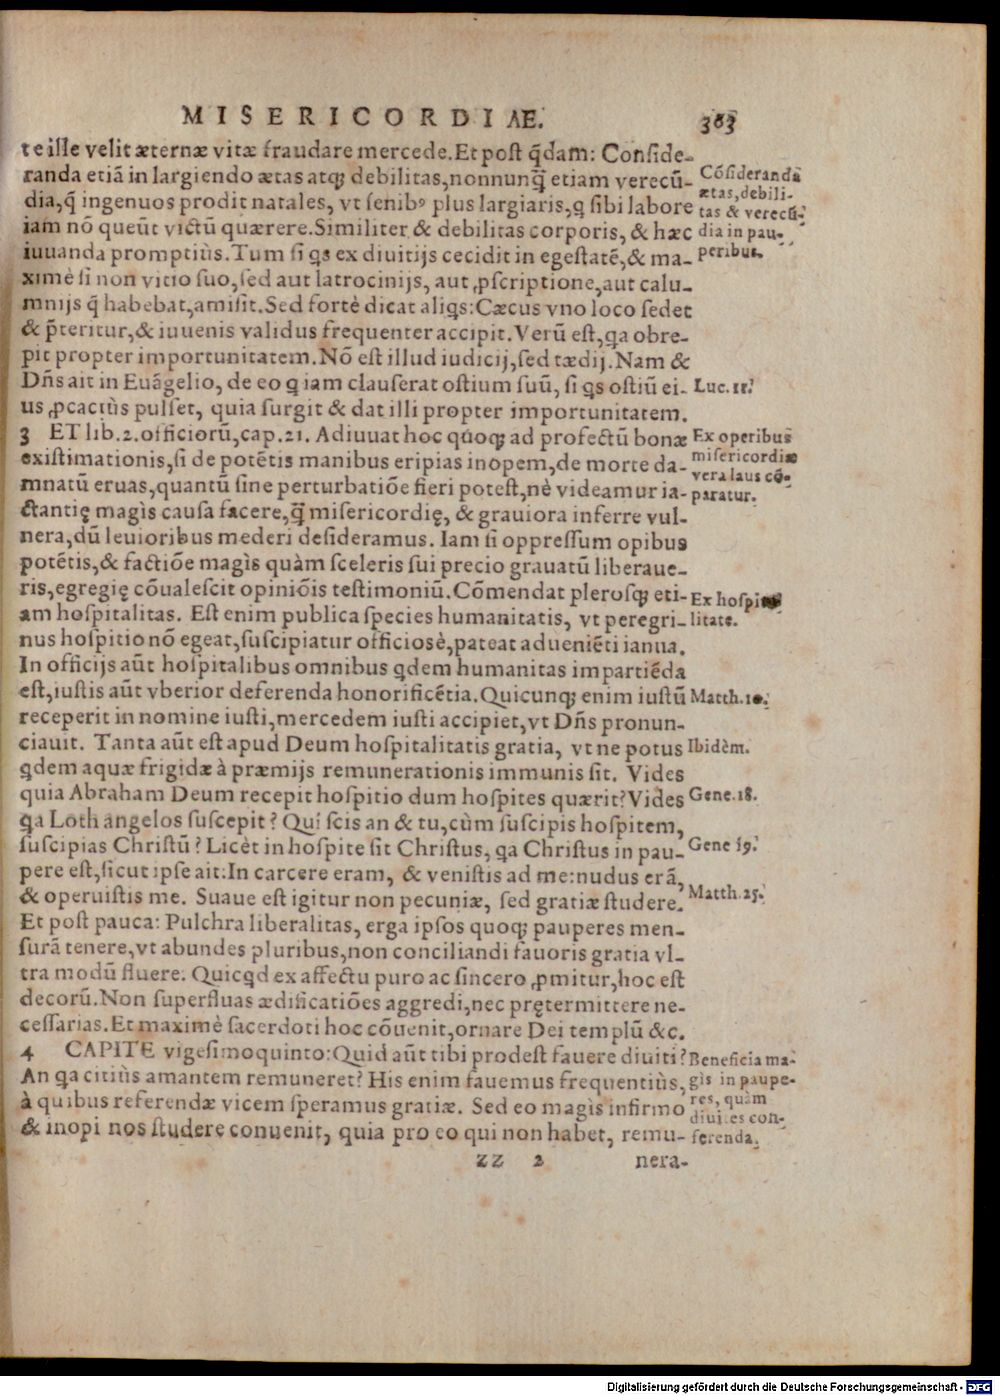 MISERICORDIAE. 363
te ille velit æternæ vitæ fraudare mercede. Et post q̃dam: Conside-
randa etiã in largiendo ætas atq; debilitas, nonnunq̃ etiam verecū-
dia, q̃ ingenuos prodit natales, vt senibꝰ plus largiaris, q sibi labore
iam nõ queũt victũ quærere. Similiter & debilitas corporis, & hæc
iuuanda promptiùs. Tum si qs ex diuitijs cecidit in egestatẽ, & ma-
ximè si non vitio suo, sed aut latrocinijs, aut ꝓscriptione, aut calu-
mnijs q̃ habebat, amisit. Sed fortè dicat aliqs: Cæcus vno loco sedet
& p̃teritur, & iuuenis validus frequenter accipit. Verũ est, qa obre-
pit propter importunitatem. Nõ est illud iudicij, sed tædij. Nam &
Dñs ait in Euãgelio, de eo q iam clauserat ostium suũ, si qs ostiũ ei-
us ꝓcaciùs pulset, quia surgit & dat illi propter importunitatem.
3 ET lib. 2. officiorũ, cap. 21. Adiuuat hoc quoq; ad profectũ bonæ
existimationis, si de potẽtis manibus eripias inopem, de morte da-
mnatũ eruas, quantũ sine perturbatiõe fieri potest, nè videamur ia-
ctantię magìs causa facere, q̃ misericordię, & grauiora inferre vul-
nera, dũ leuioribus mederi desideramus. Iam si oppressum opibus
potẽtis, & factiõe magìs quàm sceleris sui precio grauatũ liberaue-
ris, egregię cõualescit opiniõis testimoniũ. Cõmendat plerosq; eti-
am hospitalitas. Est enim publica species humanitatis, vt peregri-
nus hospitio nõ egeat, suscipiatur officiosè, pateat adueniẽti ianua.
In officijs aũt hospitalibus omnibus qdem humanitas impartiẽda
est, iustis aũt vberior deferenda honorificẽtia. Quicunq; enim iustũ
receperit in nomine iusti, mercedem iusti accipiet, vt Dñs pronun-
ciauit. Tanta aũt est apud Deum hospitalitatis gratia, vt ne potus
qdem aquæ frigidæ à præmijs remunerationis immunis sit. Vides
quia Abraham Deum recepit hospitio dum hospites quærit? Vides
qa Loth angelos suscepit? Quí scis an & tu, cùm suscipis hospitem,
suscipias Christũ? Licèt in hospite sit Christus, qa Christus in pau-
pere est, sicut ipse ait: In carcere eram, & venistis ad me: nudus erã,
& operuistis me. Suaue est igitur non pecuniæ, sed gratiæ studere.
Et post pauca: Pulchra liberalitas, erga ipsos quoq; pauperes men-
surã tenere, vt abundes pluribus, non conciliandi fauoris gratia vl-
tra modũ fluere. Quicqd ex affectu puro ac sincero ꝓmitur, hoc est
decorũ. Non superfluas ædificatiões aggredi, nec prętermittere ne-
cessarias. Et maximè sacerdoti hoc cõuenit, ornare Dei templũ &c.
4 CAPITE vigesimoquinto: Quid aũt tibi prodest fauere diuiti?
An qa citiùs amantem remuneret? His enim fauemus frequentiùs,
à quibus referendæ vicem speramus gratiæ. Sed eo magìs infirmo
& inopi nos studere conuenit, quia pro eo qui non habet, remu-
zz 2 nera-
Cõsideranda
ætas, debili-
tas & verecũ-
dia in pau-
peribus.
Luc. 11.
Ex operibus
misericordiæ
vera laus cõ-
paratur.
Ex hospita-
litate.
Matth. 10.
Ibidèm.
Gene. 18.
Gene 19.
Matth. 25.
Beneficia ma-
gìs in paupe-
res, quàm
diuites con-
ferenda.
Digitalisierung gefördert durch die Deutsche Forschungsgemeinschaft - DFG